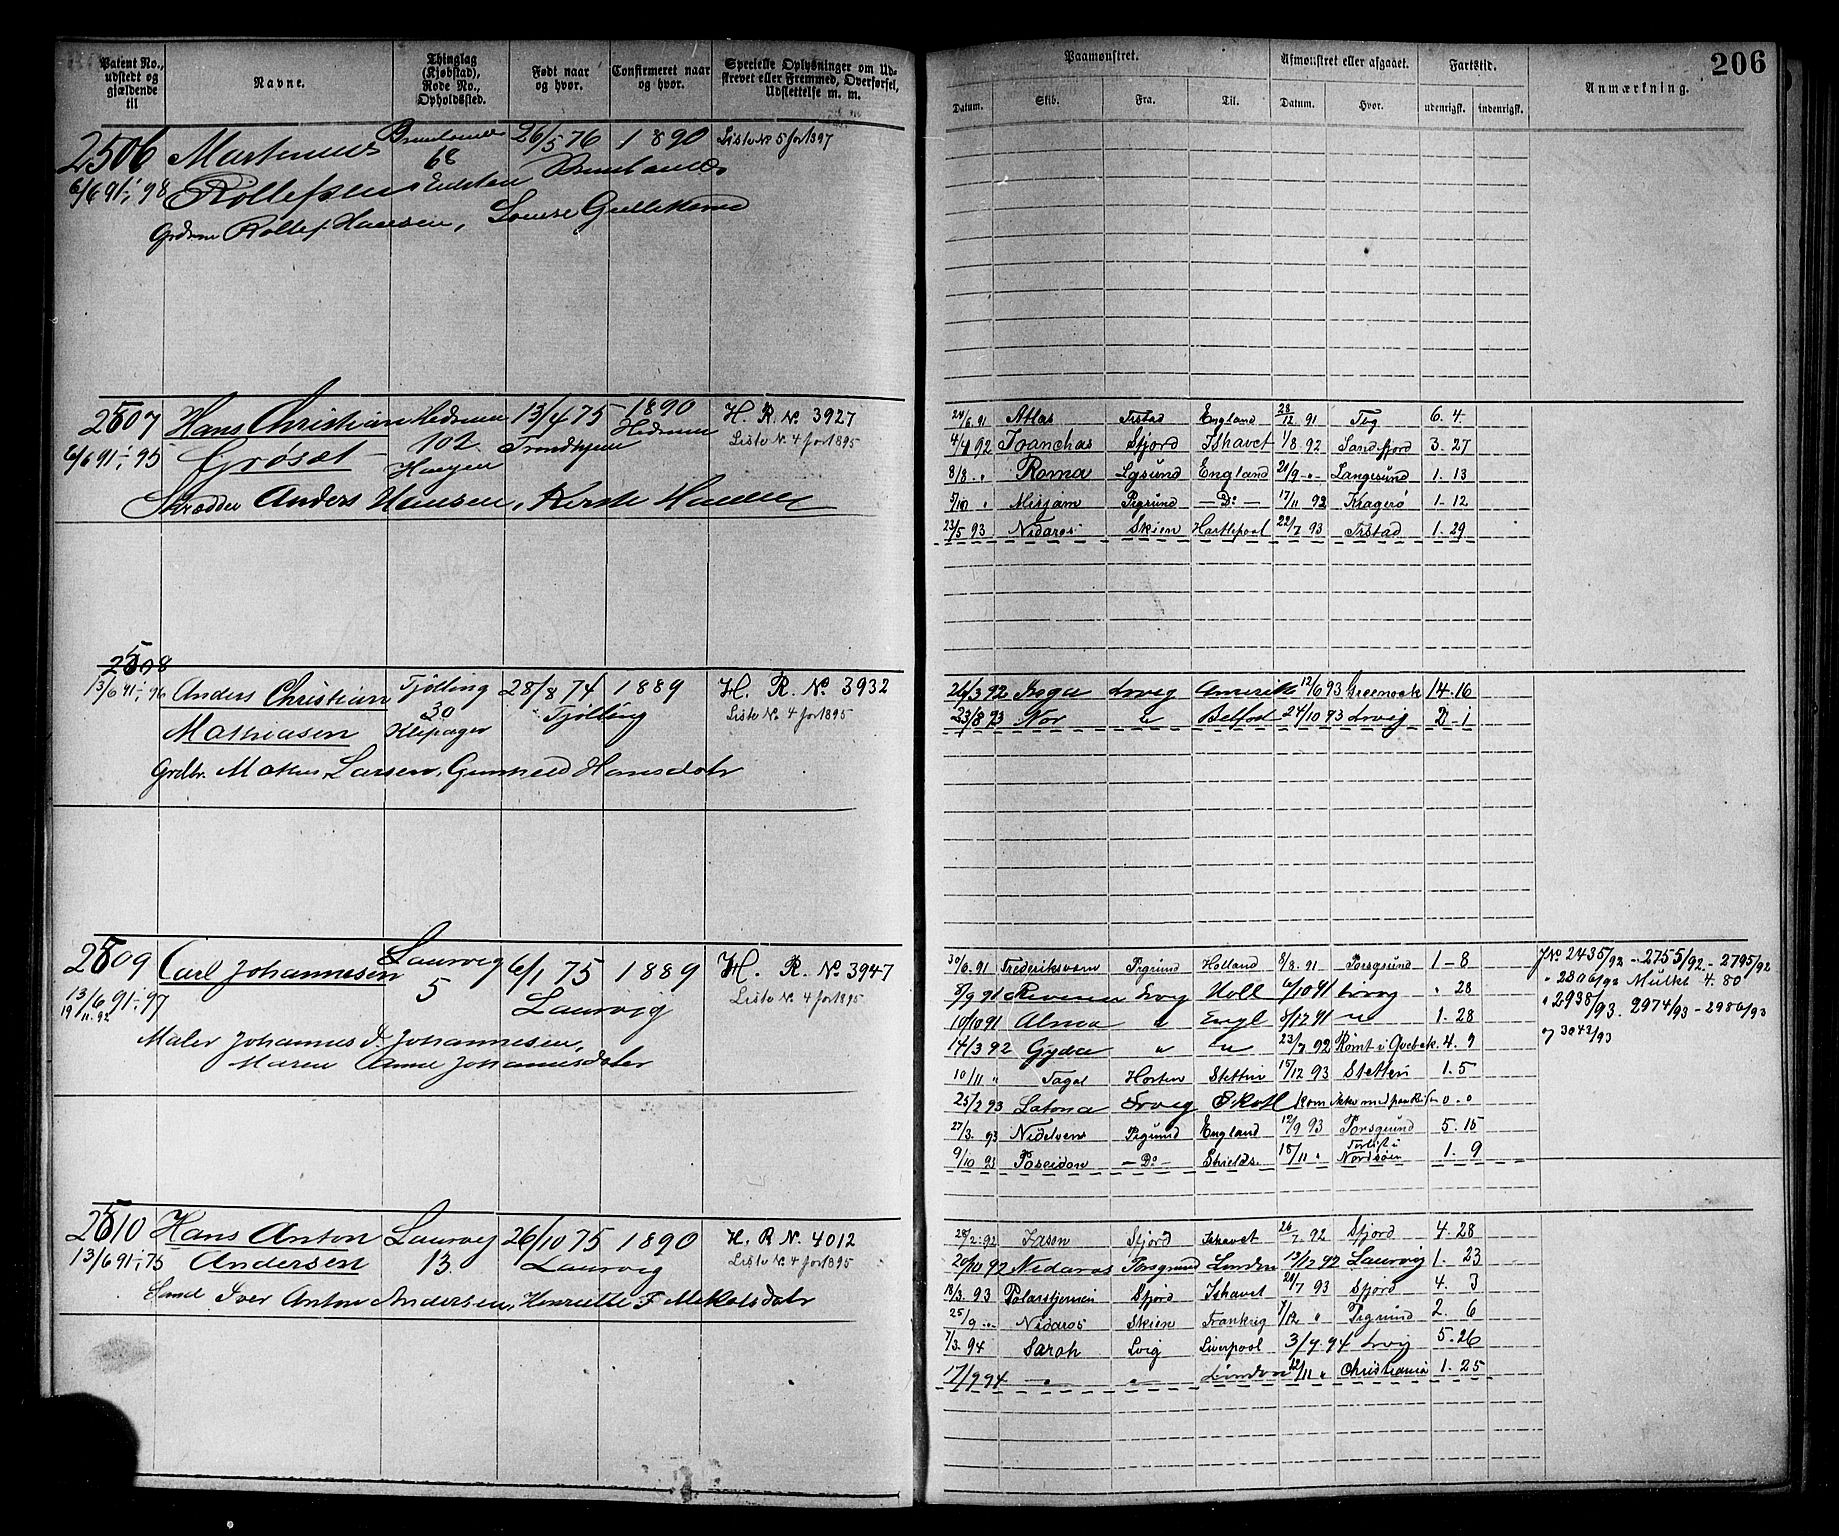 206
Patent No., udstedt og gjældende til
Navne.
Thinglag (Kjøbstad), Rode No., Opholdssted.
Født naar og hvor.
Confirmeret naar og hvor.
Specielle Oplysninger om Udskrevet eller Fremmed, Overførsel, Udslettelse m. m.
Paamønstret.
Afmønstret eller afgaaet.
Fartstid.
Anmærkning.
Datum. Skib. Fra. Til. Datum. Hvor. udenrigsk. indenrigsk.
2506 Martinius Brunlanes 26/5 76 1890 Liste No 5 for 1897
68
6/6 91 ÷ 98 Rollefsen Brunlanes
Grdm Rollef Hansen, Louise
2507 Hans Christian Hedrum 13/4 75 1890 H. R. No. 3927
102 Trondhjem Hedrum Liste No. 4 for 1895
6/6 91 ÷ 95 Grøset Haugen
Skrædder Anders Hansen,
24/6 91 Atlas Frstad England 28/12 91 6. 4.
4/4 92 Sfjord Ishavet 1/8 92 Sandefjord 3. 27
8/8 " Roma Lgsund England 21/9 " Langesund 1. 13
5/10 " Mirjam Prgrund — Do — 17/11 92 Kragerø 1- 12
23/5 93 Nidaros Skien Hartlepool 22/7 93 Frstad 1. 29
2508
13/6 91 ÷ 96 Anders Christian Tjølling 28/8 74 1889 H. R. No. 3932
30 Tjølling Liste No. 4 for 1895
Mathiasen Klepager
Grdbr. Mathias Larsen, Gunhild Hansdatr
26/3 92 Saga Lrvig Amerika 12/6 93 Greenock 14. 16
23/8 93 Nor " Belfast 24/10 93 Lrvig 2 - 1
2509 Carl Johannesen Laurvig 6/1 75 1889 H. R. No. 3947
5 Laurvig Liste No. 4 for 1895
13/6 91 ÷ 97
19/11. 92
Maler Johannes A. Johannesen,
Maren Anne Johannesdatr
30/6. 91 Frederiksværn Prgrund Holland 8/8. 91 Porsgrund 1 - 8
8/9 91 Lrvig Holl 6/10 91 Lrvig " 28
10/10 91 Alma " Engl 8/12 91 " 1. 28
14/3 92 Gyda " " 23/7 92 Rømt i Quebek 4. 9
10/11 " Fagal Horten Stettin 15/12 93 Stettin 1. 5
25/2 93 Latona Lrvig Skotl Kom ikke med paa Reisen 0. 0
27/3. 93 Nidelven Prgrund England 12/9 93 Porsgrund 5. 15
9/10 93 Poseidon — Do — Shields 18/11 " Forlist i Nordsøen 1. 9
JNo 2435/92 - 2755/92 - 2795/92
" 2806/92 Mulkt 4. 80
" 2938/93. 2974/93 - 2980/93
og 3042/93
2510 Hans Anton Laurvig 26/10 75 1890 H. R. No. 4012
13/6 91 ÷ 75 Andersen 13. Laurvig Liste No. 4 for 1895
Iver Anton Andersen, Henriette F. Mikkelsdatr
28/2. 92 Jason Sfjord Ishavet 26/7 92 Sfjord 4. 28
20/10 92 Nidaros Porsgrund London 13/12 92 Laurvig 1. 23
18/3. 93 Polarstjernen Sfjord Ishavet 21/7 93 Sfjord 4. 3
25/9 " Nidaros Skien Frankrig 7/12 " Prgrund 2. 6
7/3. 94 Sarah Lvig Liverpool 3/9. 94 Lrvig 5. 26
17/9 94 — " — " London 12/11 " Christiania 1. 25